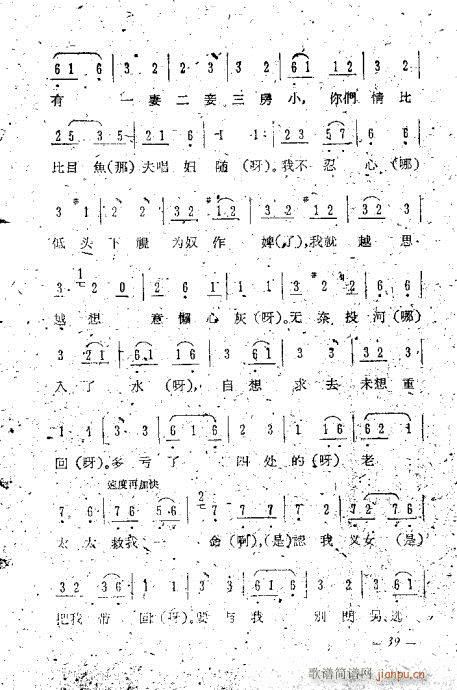 6 1 6 | 3 2 | 2 3 | 3 2 | 6 1 1 2 | 3 2
有 一妻二妾三房小,你們情比
2 5 3 5 | 2 1 6 | 1 1 | 1 2 3 5 7 | 6 6
比目魚(那)夫唱妇随(呀)。我不忍心(哪)
3 1 | 2 2 | 3 2 1 2 | 3 2 1 2 | 3 2 3
低头下 为奴作婢(了),我就越思
3 2 0 | 2 6 1 | 1 1 | 3 2 | 2 6
越想 意懒心灰(呀)。无奈投河(哪)
3 2 1 | 6 1 1 6 | 2 2 | 3 6 1 | 1 2 | 3 2
入了水(呀),自想求去未想重
1 1 | 3 3 | 6 1 6 1 | 3 2 | 1 6 1 6 | 6 2 1
回(呀)。多亏了 四处的(呀)老
速度再加快
7 6 | 7 6 5 6 | 7 7 | 6 7 | 2 2 | 7 6 7 6
太太救我一命(啊),(是)認我义女(是)
3 2 3 6 | 1 1 | 3 3 | 6 1 6 | 3 2 | 3 6 1
把我带回(呀)。要与我 别門另选
— 39 —
歌谱简谱网
jianpu.cn